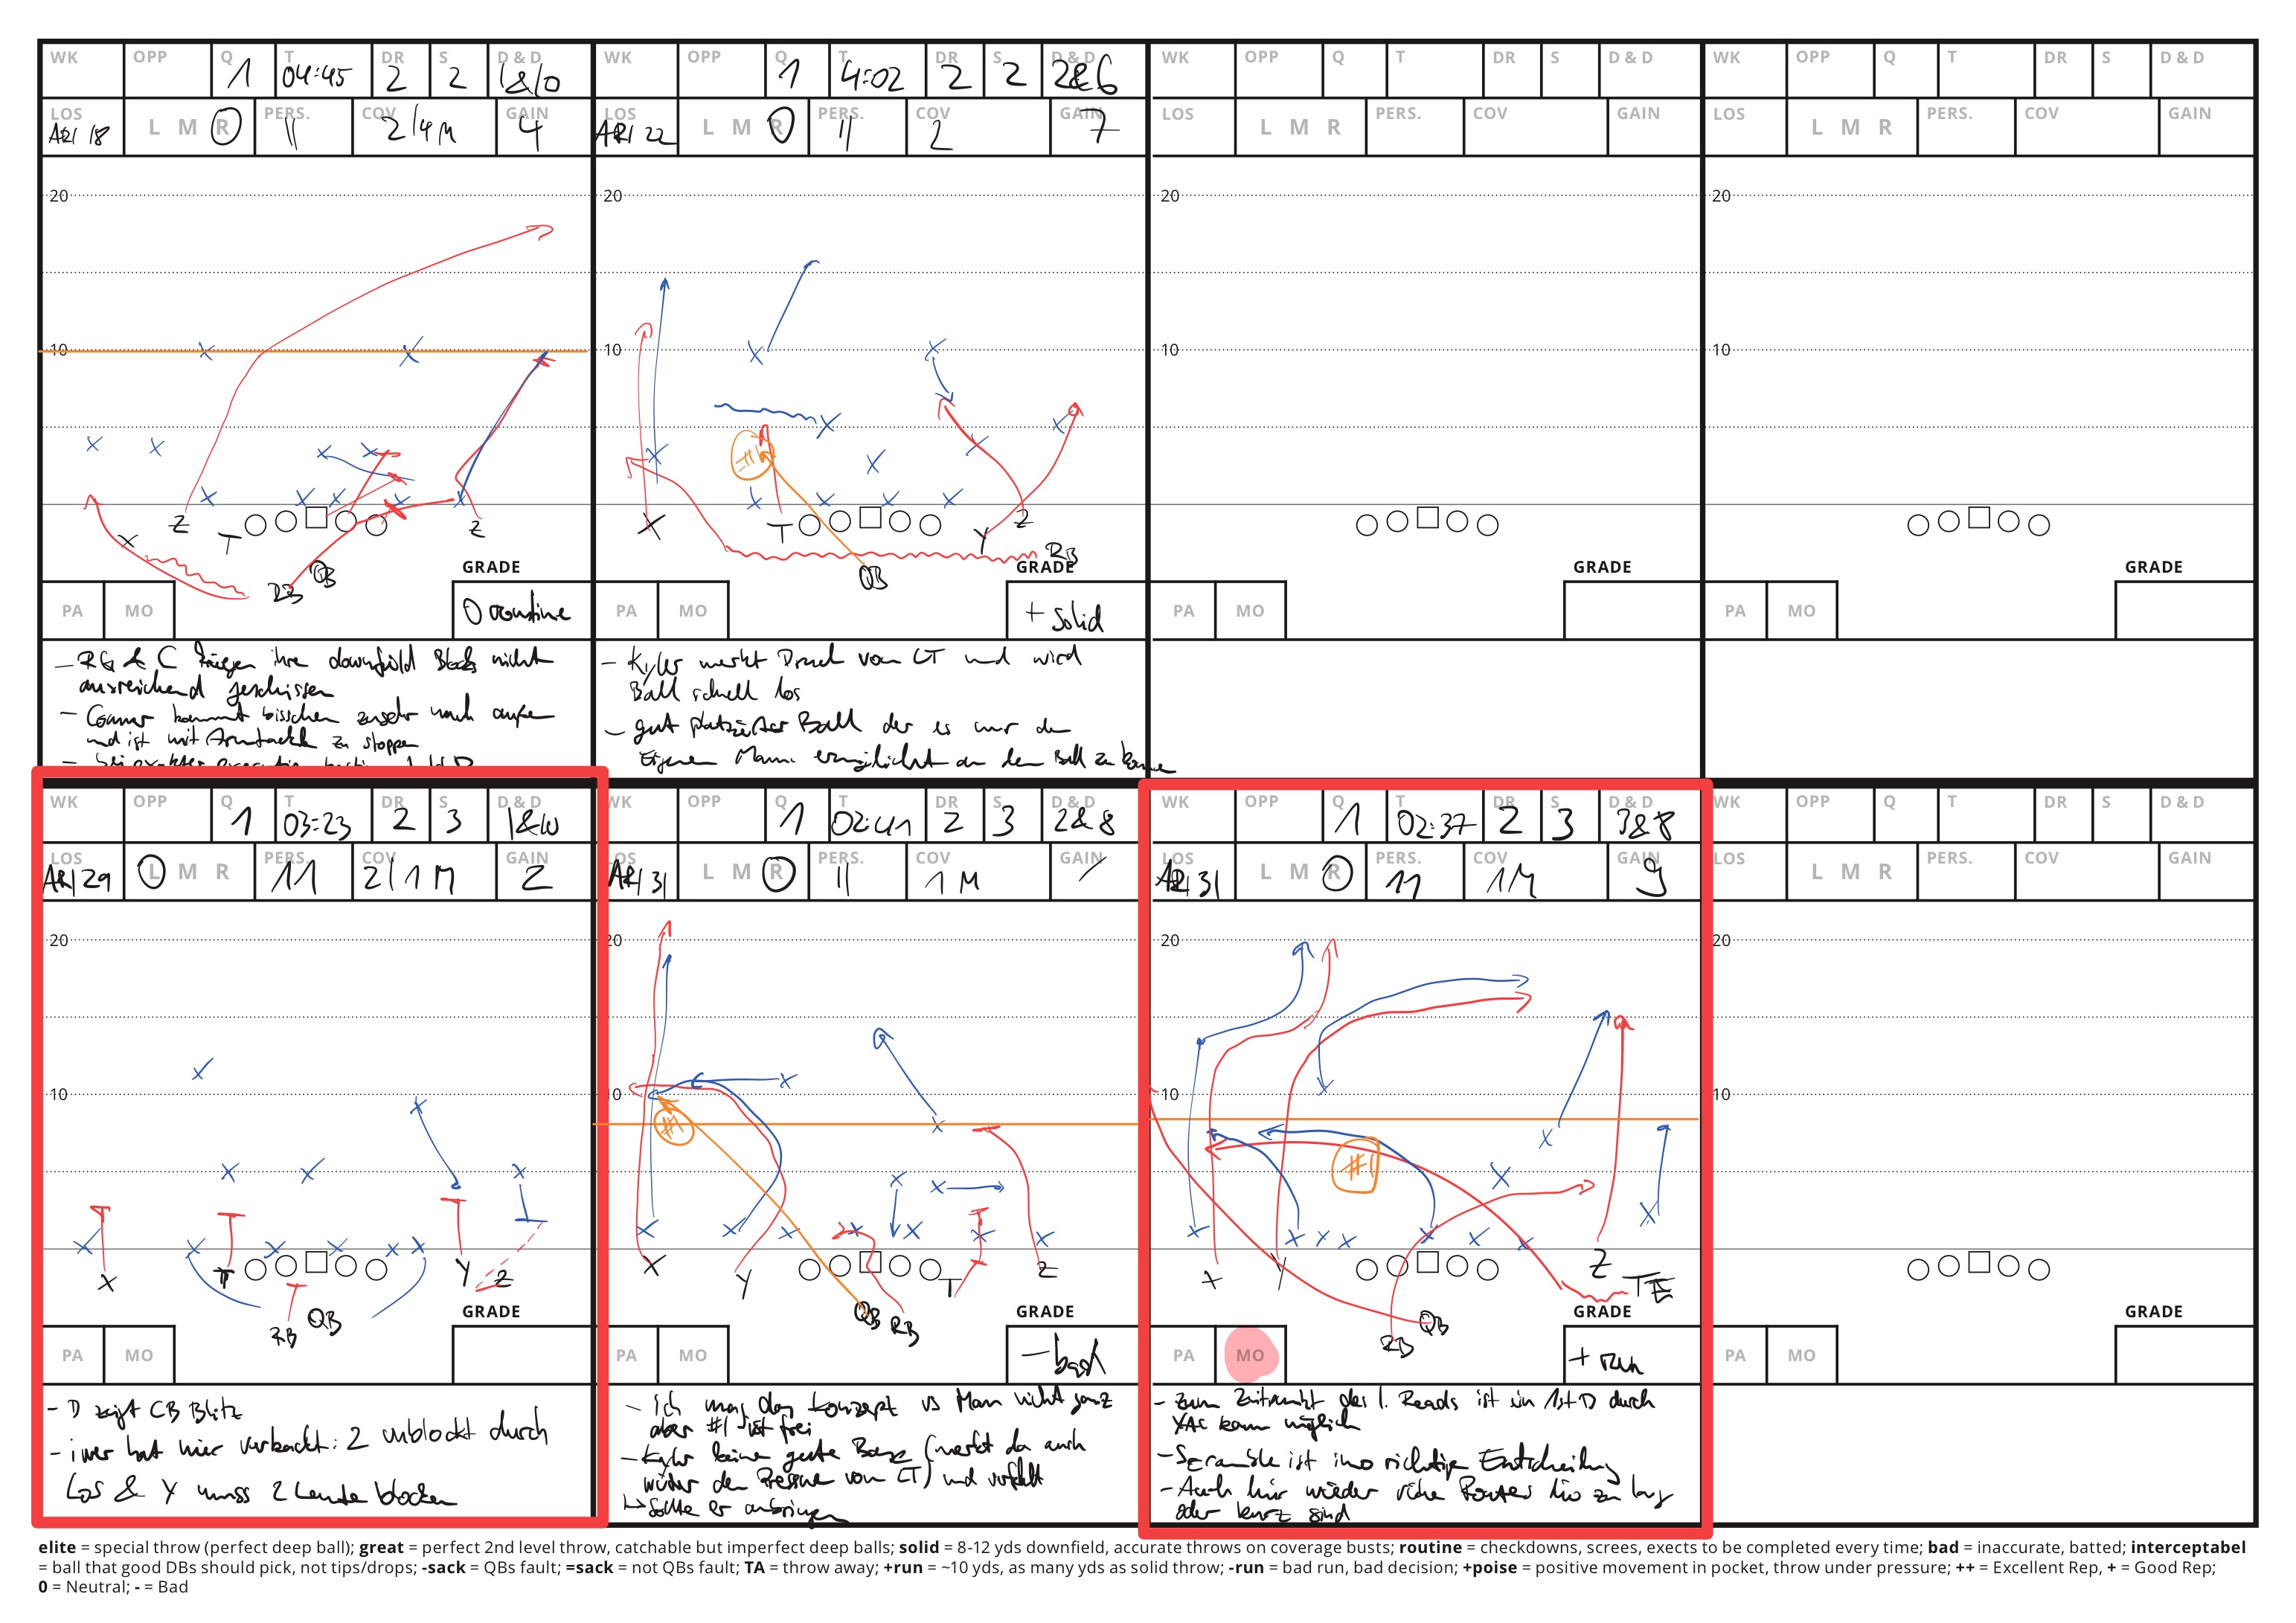 WK OPP Q 1 T 04:45 DR 2 S 2 D & D 1&10
LOS ARI 18 L M R PERS. 11 COV 2/4M GAIN 4
20
10
X Z T Z
RB QB
GRADE
PA MO 0 routine
- RG & C kriegen ihre downfield Blocks nicht
ausreichend geschissen
- Conner kommt bisschen zusehr nach außen
und ist mit Armtackle zu stoppen
WK OPP Q 1 T 4:02 DR 2 S 2 D & D 2&6
LOS ARI 22 L M R PERS. 11 COV 2 GAIN 7
20
10
#1
X T Y Z
QB RB
GRADE
PA MO + solid
- Kyler merkt Druck vom LT und wird
Ball schnell los
- gut platzierter Ball der es nur dem
Eigenen Mann ermöglicht an den Ball zu kommen
WK OPP Q T DR S D & D
LOS L M R PERS. COV GAIN
20
10
GRADE
PA MO
WK OPP Q T DR S D & D
LOS L M R PERS. COV GAIN
20
10
GRADE
PA MO
WK OPP Q 1 T 03:23 DR 2 S 3 D & D 1&10
LOS ARI 29 L M R PERS. 11 COV 2/1M GAIN 2
20
10
X T Y Z
RB QB
GRADE
PA MO
- D zeigt CB Blitz
- iwer hat hier verkackt: 2 unblockt durch
LOS & Y muss 2 Leute blocken
WK OPP Q 1 T 02:41 DR 2 S 3 D & D 2&8
LOS ARI 31 L M R PERS. 11 COV 1M GAIN /
20
10
#1
X Y T Z
QB RB
GRADE
PA MO - bad
- Ich mag das Konzept vs Man nicht ganz
aber #1 ist frei
- Kyler keine gute Base (merkt da auch
wieder den Pressure vom LT) und verfehlt
↳ sollte er anbringen
WK OPP Q 1 T 02:37 DR 2 S 3 D & D 3&8
LOS ARI 31 L M R PERS. 11 COV 1M GAIN 9
20
10
#1
X Y Z TE
RB QB
GRADE
PA MO + run
- zum Zeitpunkt des 1. Reads ist ein 1st D durch
YAC kaum möglich
- Scramble ist imo richtige Entscheidung
- Auch hier wieder viele Routes die zu lang
oder kurz sind
WK OPP Q T DR S D & D
LOS L M R PERS. COV GAIN
20
10
GRADE
PA MO
elite = special throw (perfect deep ball); great = perfect 2nd level throw, catchable but imperfect deep balls; solid = 8-12 yds downfield, accurate throws on coverage busts; routine = checkdowns, screes, exects to be completed every time; bad = inaccurate, batted; interceptabel
= ball that good DBs should pick, not tips/drops; -sack = QBs fault; =sack = not QBs fault; TA = throw away; +run = ~10 yds, as many yds as solid throw; -run = bad run, bad decision; +poise = positive movement in pocket, throw under pressure; ++ = Excellent Rep, + = Good Rep;
0 = Neutral; - = Bad